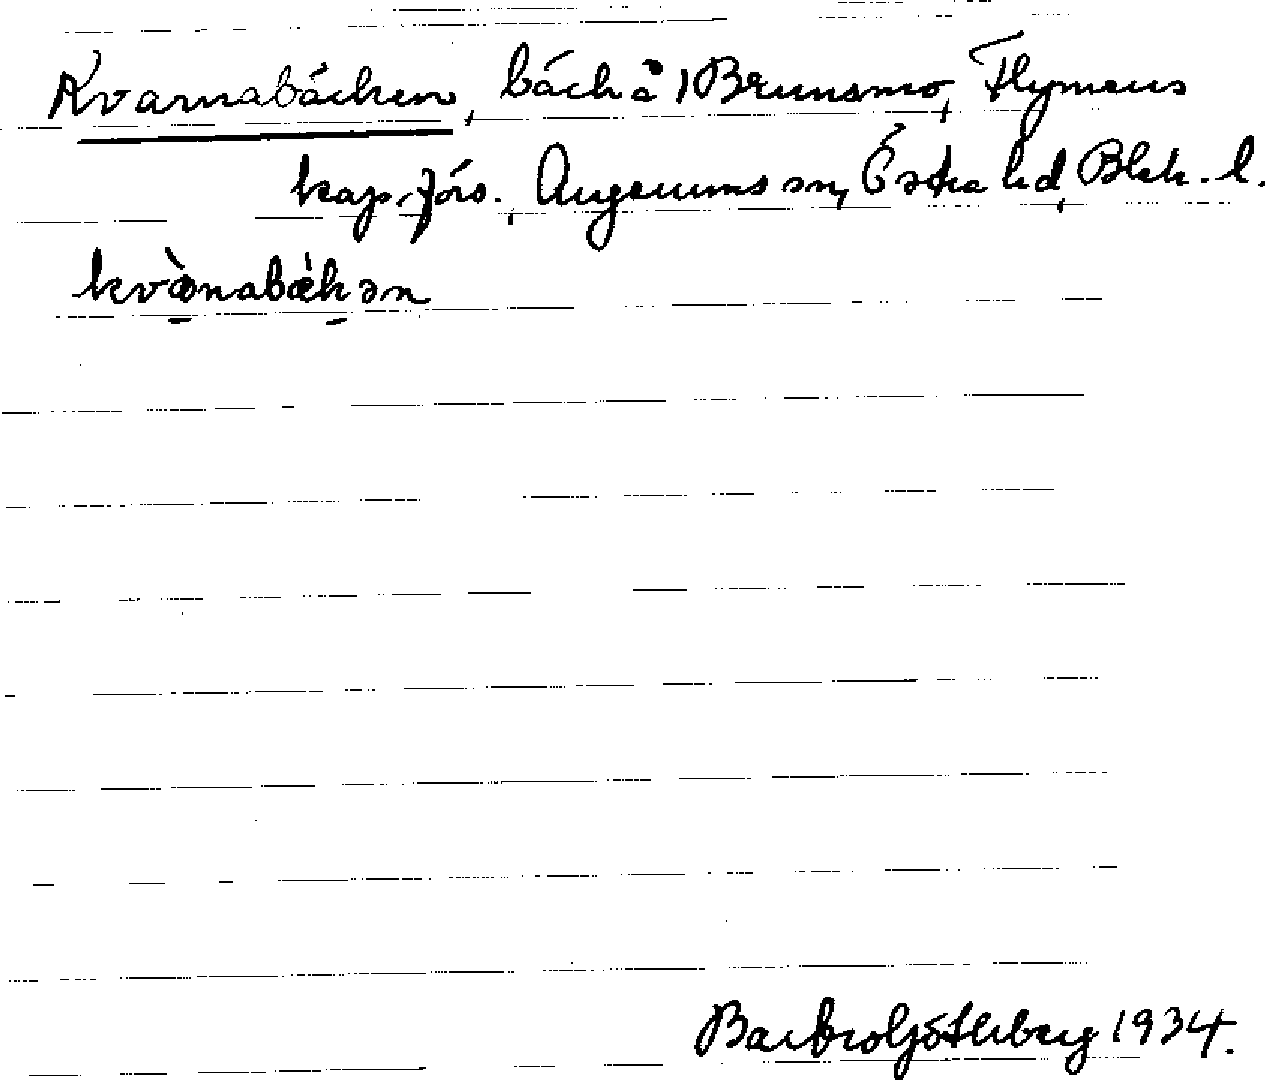 Kvarnabäcken, bäck å 1 Brunsmo, Flymens
kap.förs., Augerums sn, Östra hd, Blek. l.
kvànabækən
Barbro Götherberg 1934.